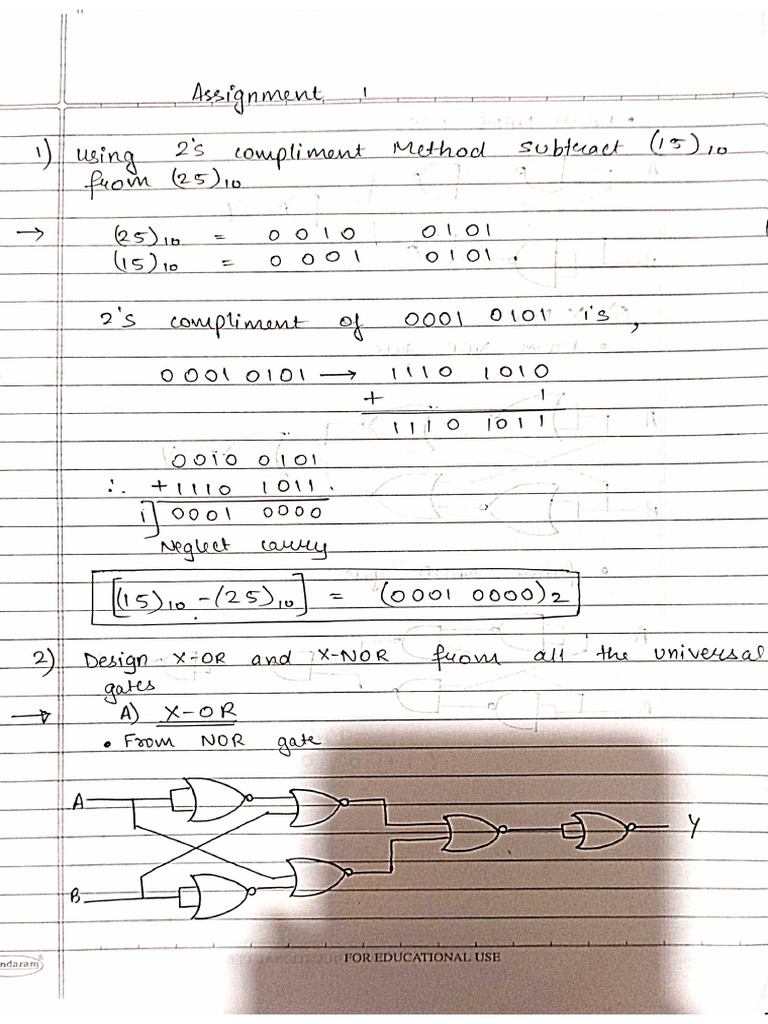 Assignment 1
1) using 2's compliment Method subtract (15)10
from (25)10
→ (25)10 = 0010 0101
(15)10 = 0001 0101.
2's compliment of 0001 0101 is,
00010101 → 1110 1010
+ 1
1110 1011
0010 0101
∴ +1110 1011.
1] 0001 0000
Neglect carry
[(15)10 - (25)10] = (0001 0000)2
2) Design X-OR and X-NOR from all the universal
gates
→ A) X-OR
• From NOR gate
A
Y
B
ndaram
FOR EDUCATIONAL USE